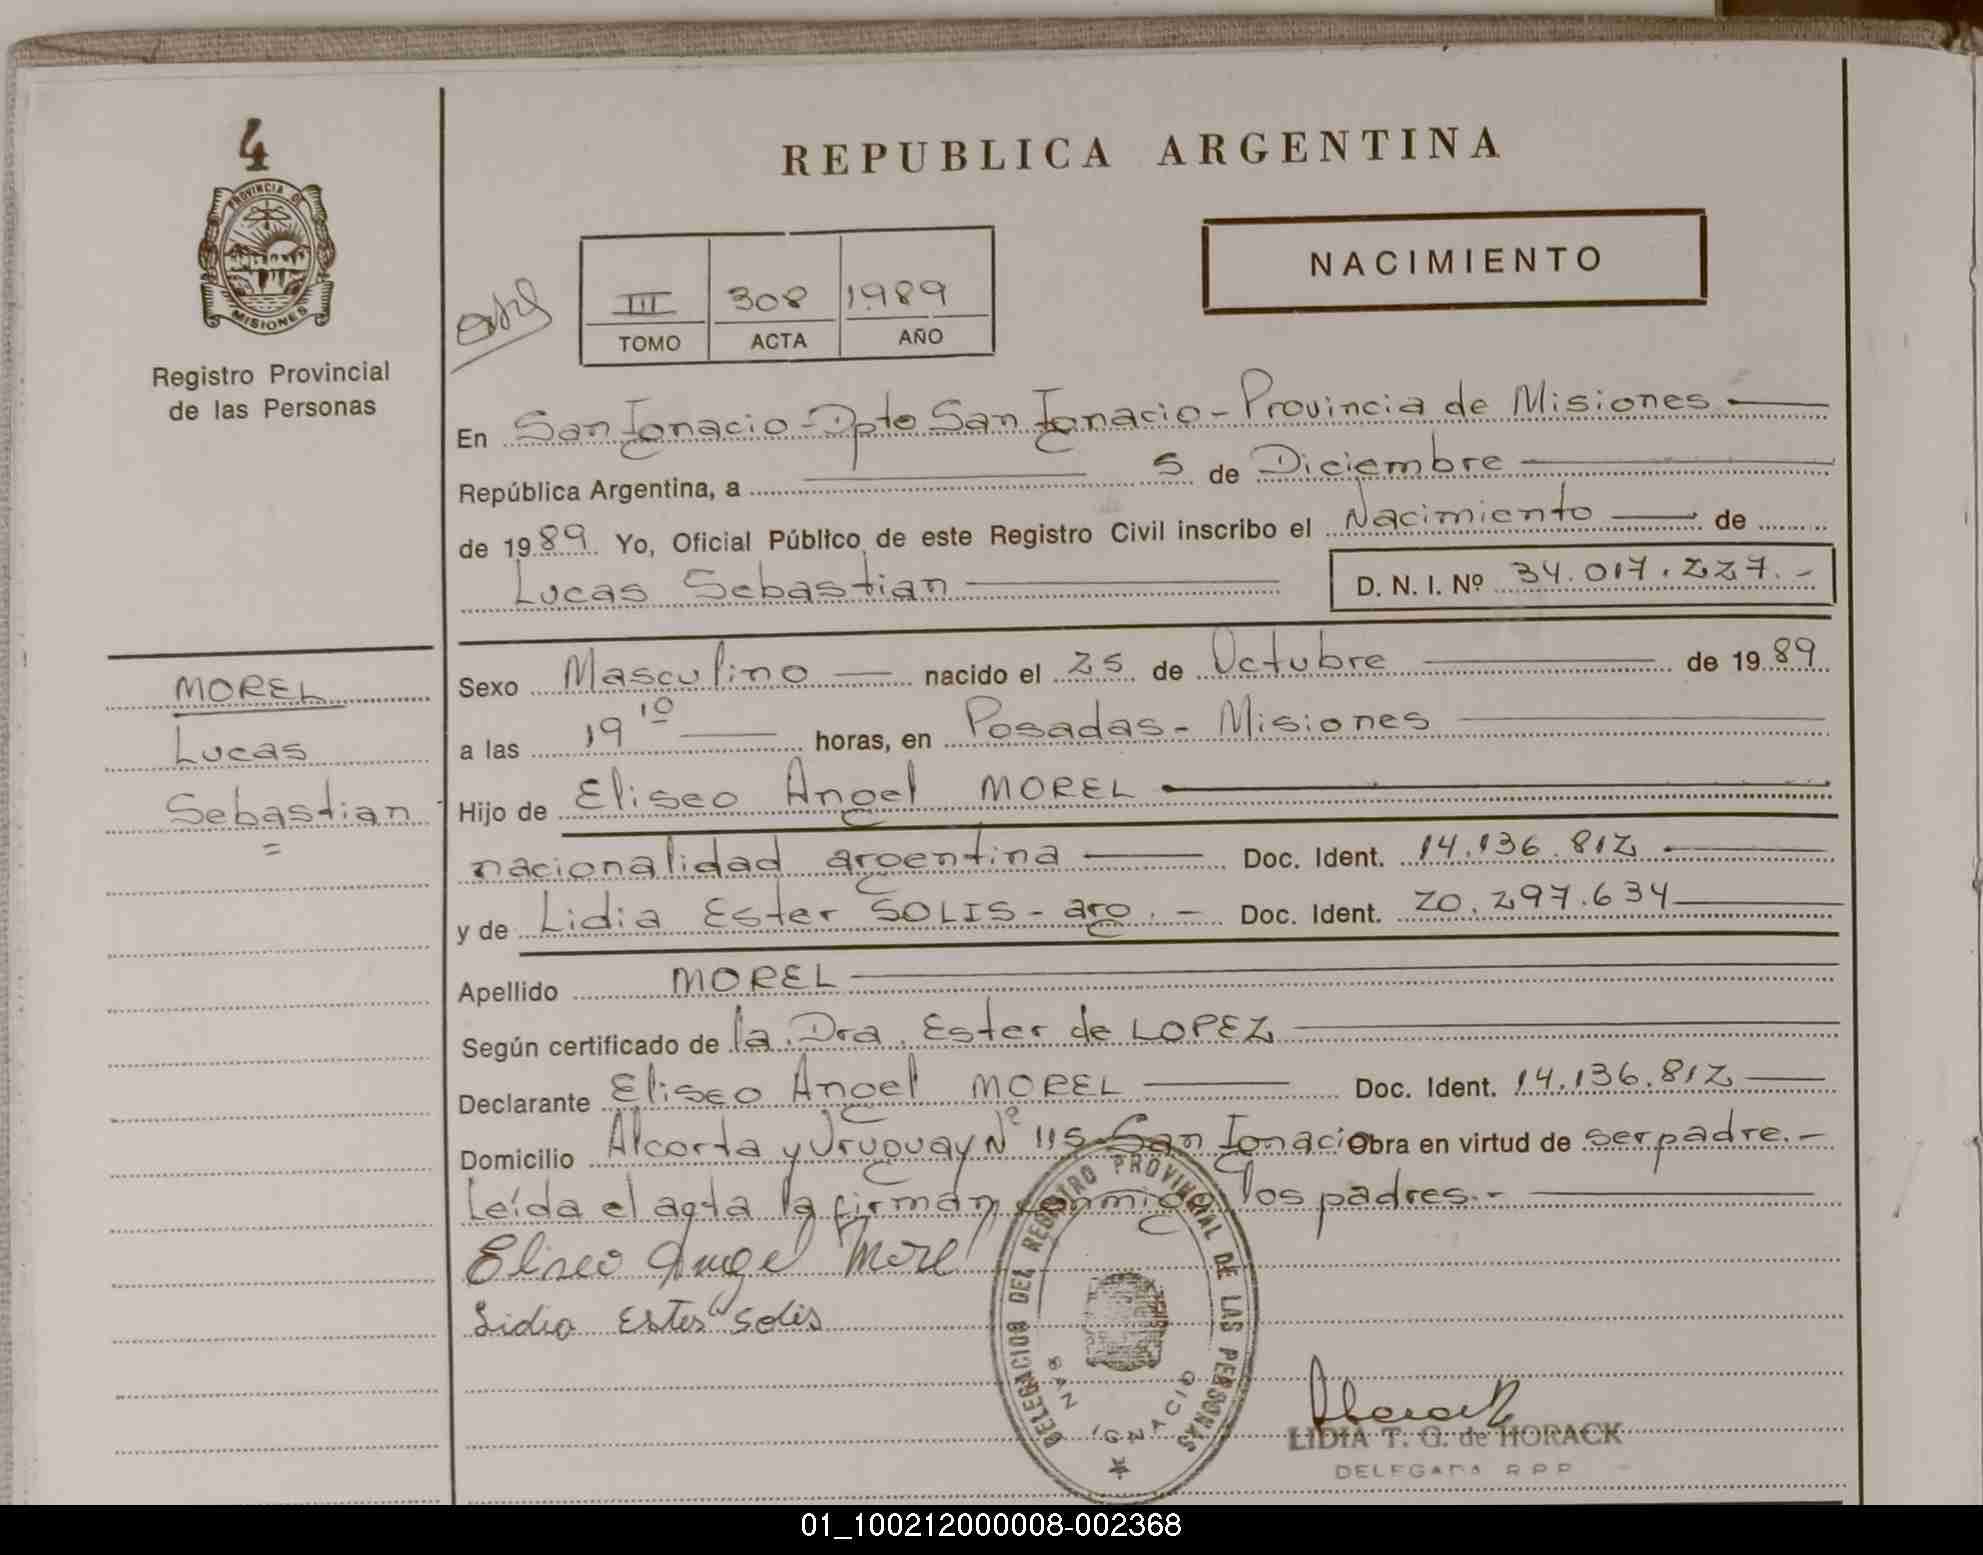 4
PROVINCIA DE
MISIONES
Registro Provincial
de las Personas
MOREL
Lucas
Sebastian
=
REPUBLICA ARGENTINA
NACIMIENTO
III 308 1989
TOMO ACTA AÑO
En San Ignacio - Dpto San Ignacio - Provincia de Misiones
República Argentina, a 5 de Diciembre
de 1989. Yo, Oficial Público de este Registro Civil inscribo el Nacimiento de
Lucas Sebastian D. N. I. Nº 34.017.227.-
Sexo Masculino nacido el 25 de Octubre de 1989
a las 19 10 horas, en Posadas - Misiones
Hijo de Eliseo Angel MOREL
nacionalidad argentina Doc. Ident. 14.136.812
y de Lidia Ester SOLIS - arg. - Doc. Ident. 20.297.634
Apellido MOREL
Según certificado de la Dra. Ester de LOPEZ
Declarante Eliseo Angel MOREL Doc. Ident. 14.136.812
Domicilio Alcorta y Uruguay Nº 115 San Ignacio Obra en virtud de ser padre.-
Leída el acta la firman conmigo los padres.-
Eliseo Angel Morel
Lidia Ester Solis
DELEGACION DEL REGISTRO PROVINCIAL DE LAS PERSONAS
SAN IGNACIO
LIDIA T. G. de HORACK
DELEGADA R.P.P.
01_100212000008-002368